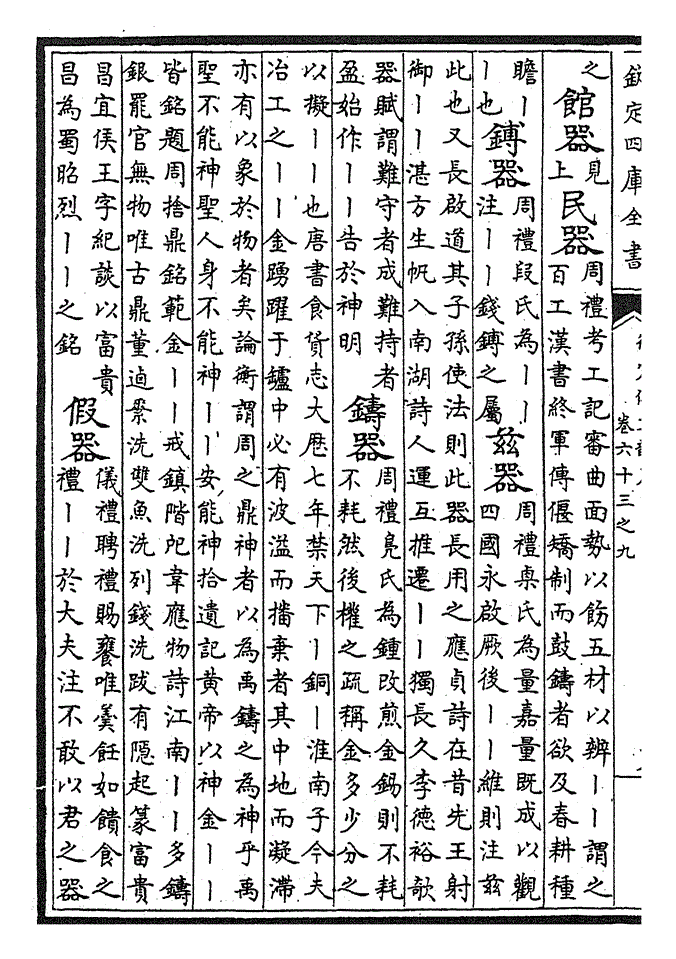 欽定四庫全書
卷六十三之九
之
館器
見
上
民器
周禮考工記審曲面勢以飭五材以辨丨丨謂之
百工漢書終軍傳偃矯制而鼓鑄者欲及春耕種
贍丨
丨也
鎛器
周禮段氏為丨丨
注丨丨錢鎛之屬
茲器
周禮㮚氏為量嘉量既成以觀
四國永啟厥後丨丨維則注茲
此也又長啟道其子孫使法則此器長用之應貞詩在昔先王射
御丨丨湛方生帆入南湖詩人運互推遷丨丨獨長久李德裕欹
器賦謂難守者成難持者
盈始作丨丨告於神明
鑄器
周禮鳧氏為鍾改煎金錫則不耗
不耗然後權之疏稱金多少分之
以擬丨丨也唐書食貨志大厯七年禁天下丨銅丨淮南子今夫
冶工之丨丨金踴躍于鑪中必有波溢而播棄者其中地而凝滯
亦有以象於物者矣論衡謂周之鼎神者以為禹鑄之為神乎禹
聖不能神聖人身不能神丨丨安能神拾遺記黄帝以神金丨丨
皆銘題周捨鼎銘範金丨丨戒鎮階戺韋應物詩江南丨丨多鑄
銀罷官無物唯古鼎董逌槃洗雙魚洗列錢洗跋有隠起篆富貴
昌宜侯王字紀談以富貴
昌為蜀昭烈丨丨之銘
假器
儀禮聘禮賜饔唯羮飪如饋食之
禮丨丨於大夫注不敢以君之器